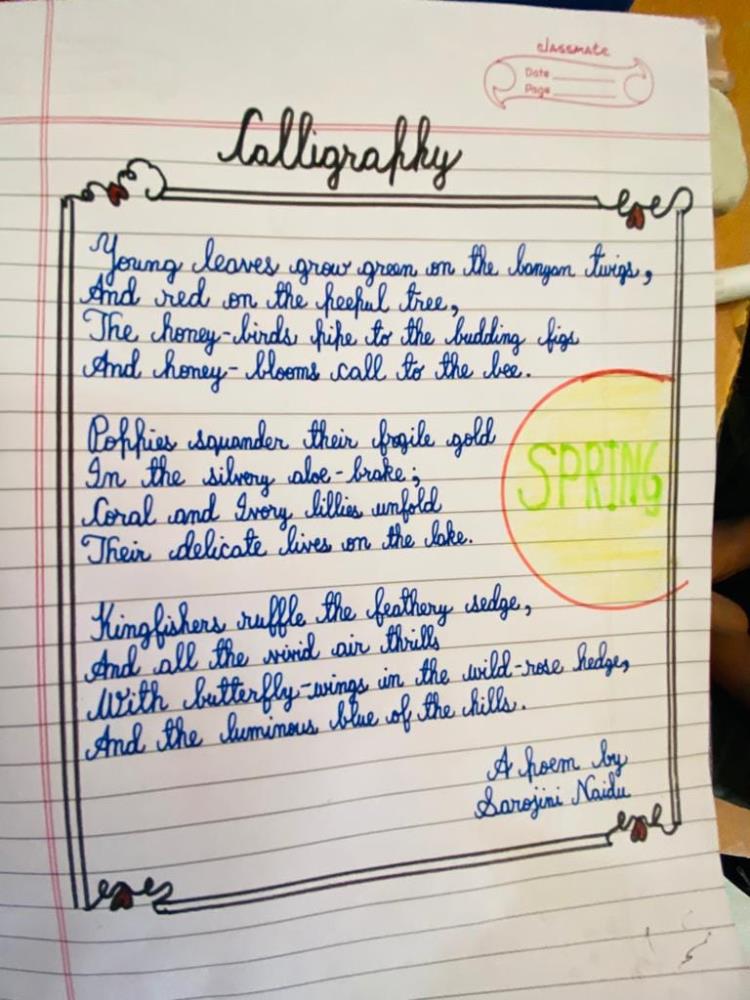 classmate
Date
Page
Calligraphy
Young leaves grow green on the banyan twigs,
And red on the peepul tree,
The honey-birds pipe to the budding figs
And honey-blooms call to the bee.
Poppies squander their fragile gold
In the silvery aloe-brake;
Coral and Ivory lillies unfold
Their delicate lives on the lake.
SPRING
Kingfishers ruffle the feathery sedge,
And all the vivid air thrills
With butterfly-wings in the wild-rose hedge,
And the luminous blue of the hills.
A poem by
Sarojini Naidu